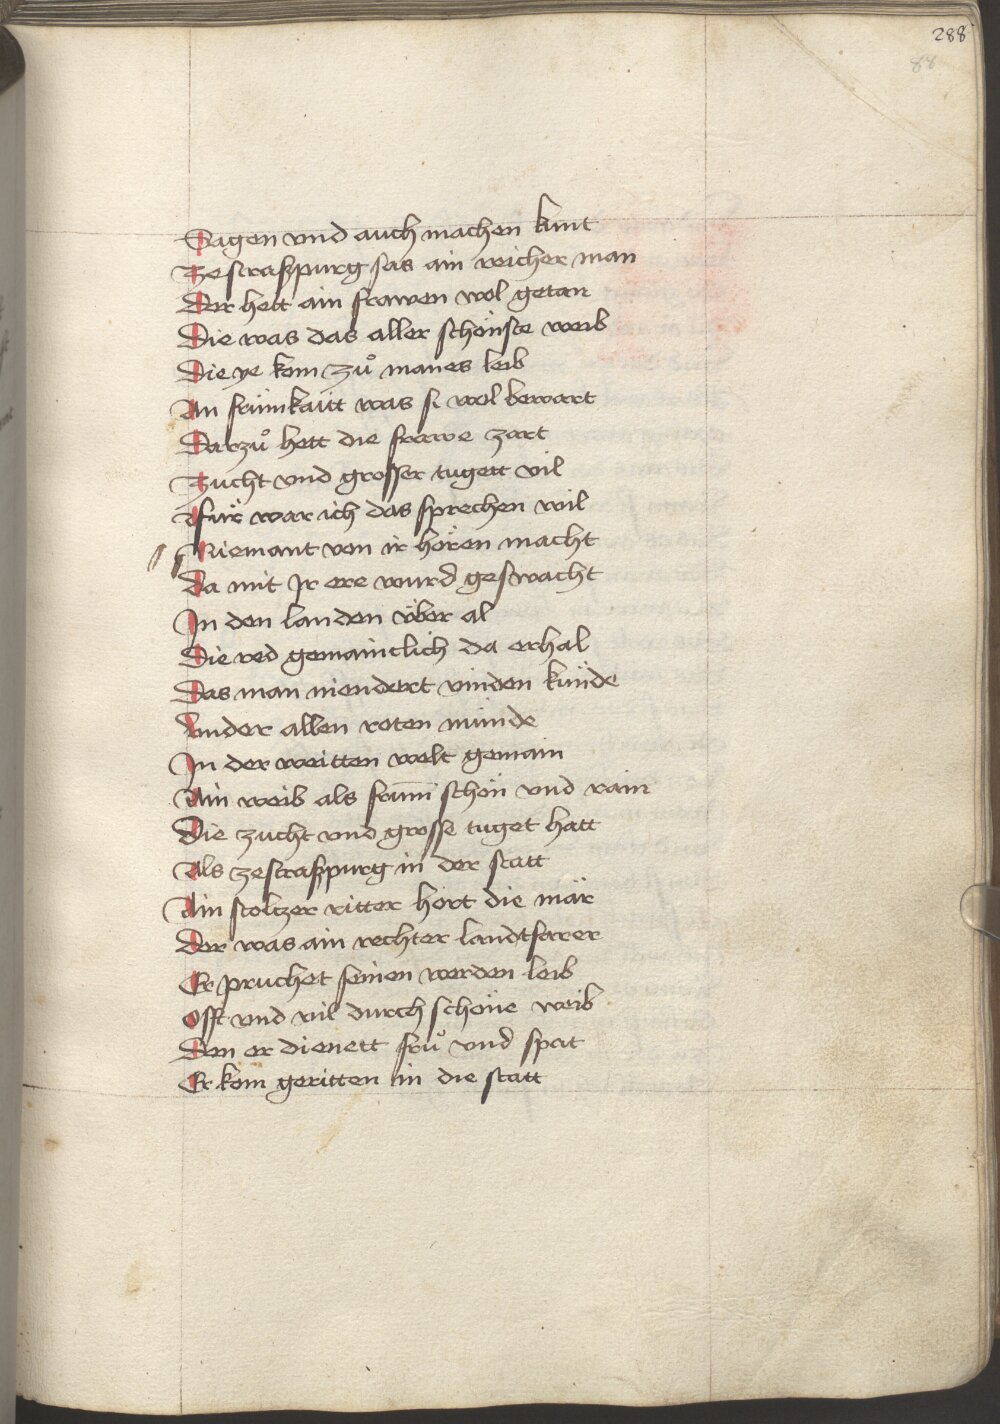 288
88
Sagen vnd auch machen kunt
Zestraßpurg sas ain reicher man
Der hett ain frawen wol getan
Die was das aller schönste weib
Die ye kom zuͦ manes leib
An frümkaitt was si wol bewart
Darzuͦ hett die frawe zart
Zucht vnd grosser tugett vil
Für war ich das sprechen wil
Niemant von ir hören macht
Da mit Jr ere wurd geswacht
Jn den landen über al
Die red gemaintlich da erhal
Das man niendert vinden künde
Vnder allen roten münde
Jn der weitten welt gemain
Ain weib als frum̄ schön vnd rain
Die zucht vnd grosse tuget hatt
Als zestraßpurg in der statt
Ain stoltzer ritter hört die mär
Der was ain rechter landtfarer
Er pruchet seinen werden leib
Offt vnd vil durch schöne weib
Den er dienett fruͦ vnd spat
Er kom geritten in die statt